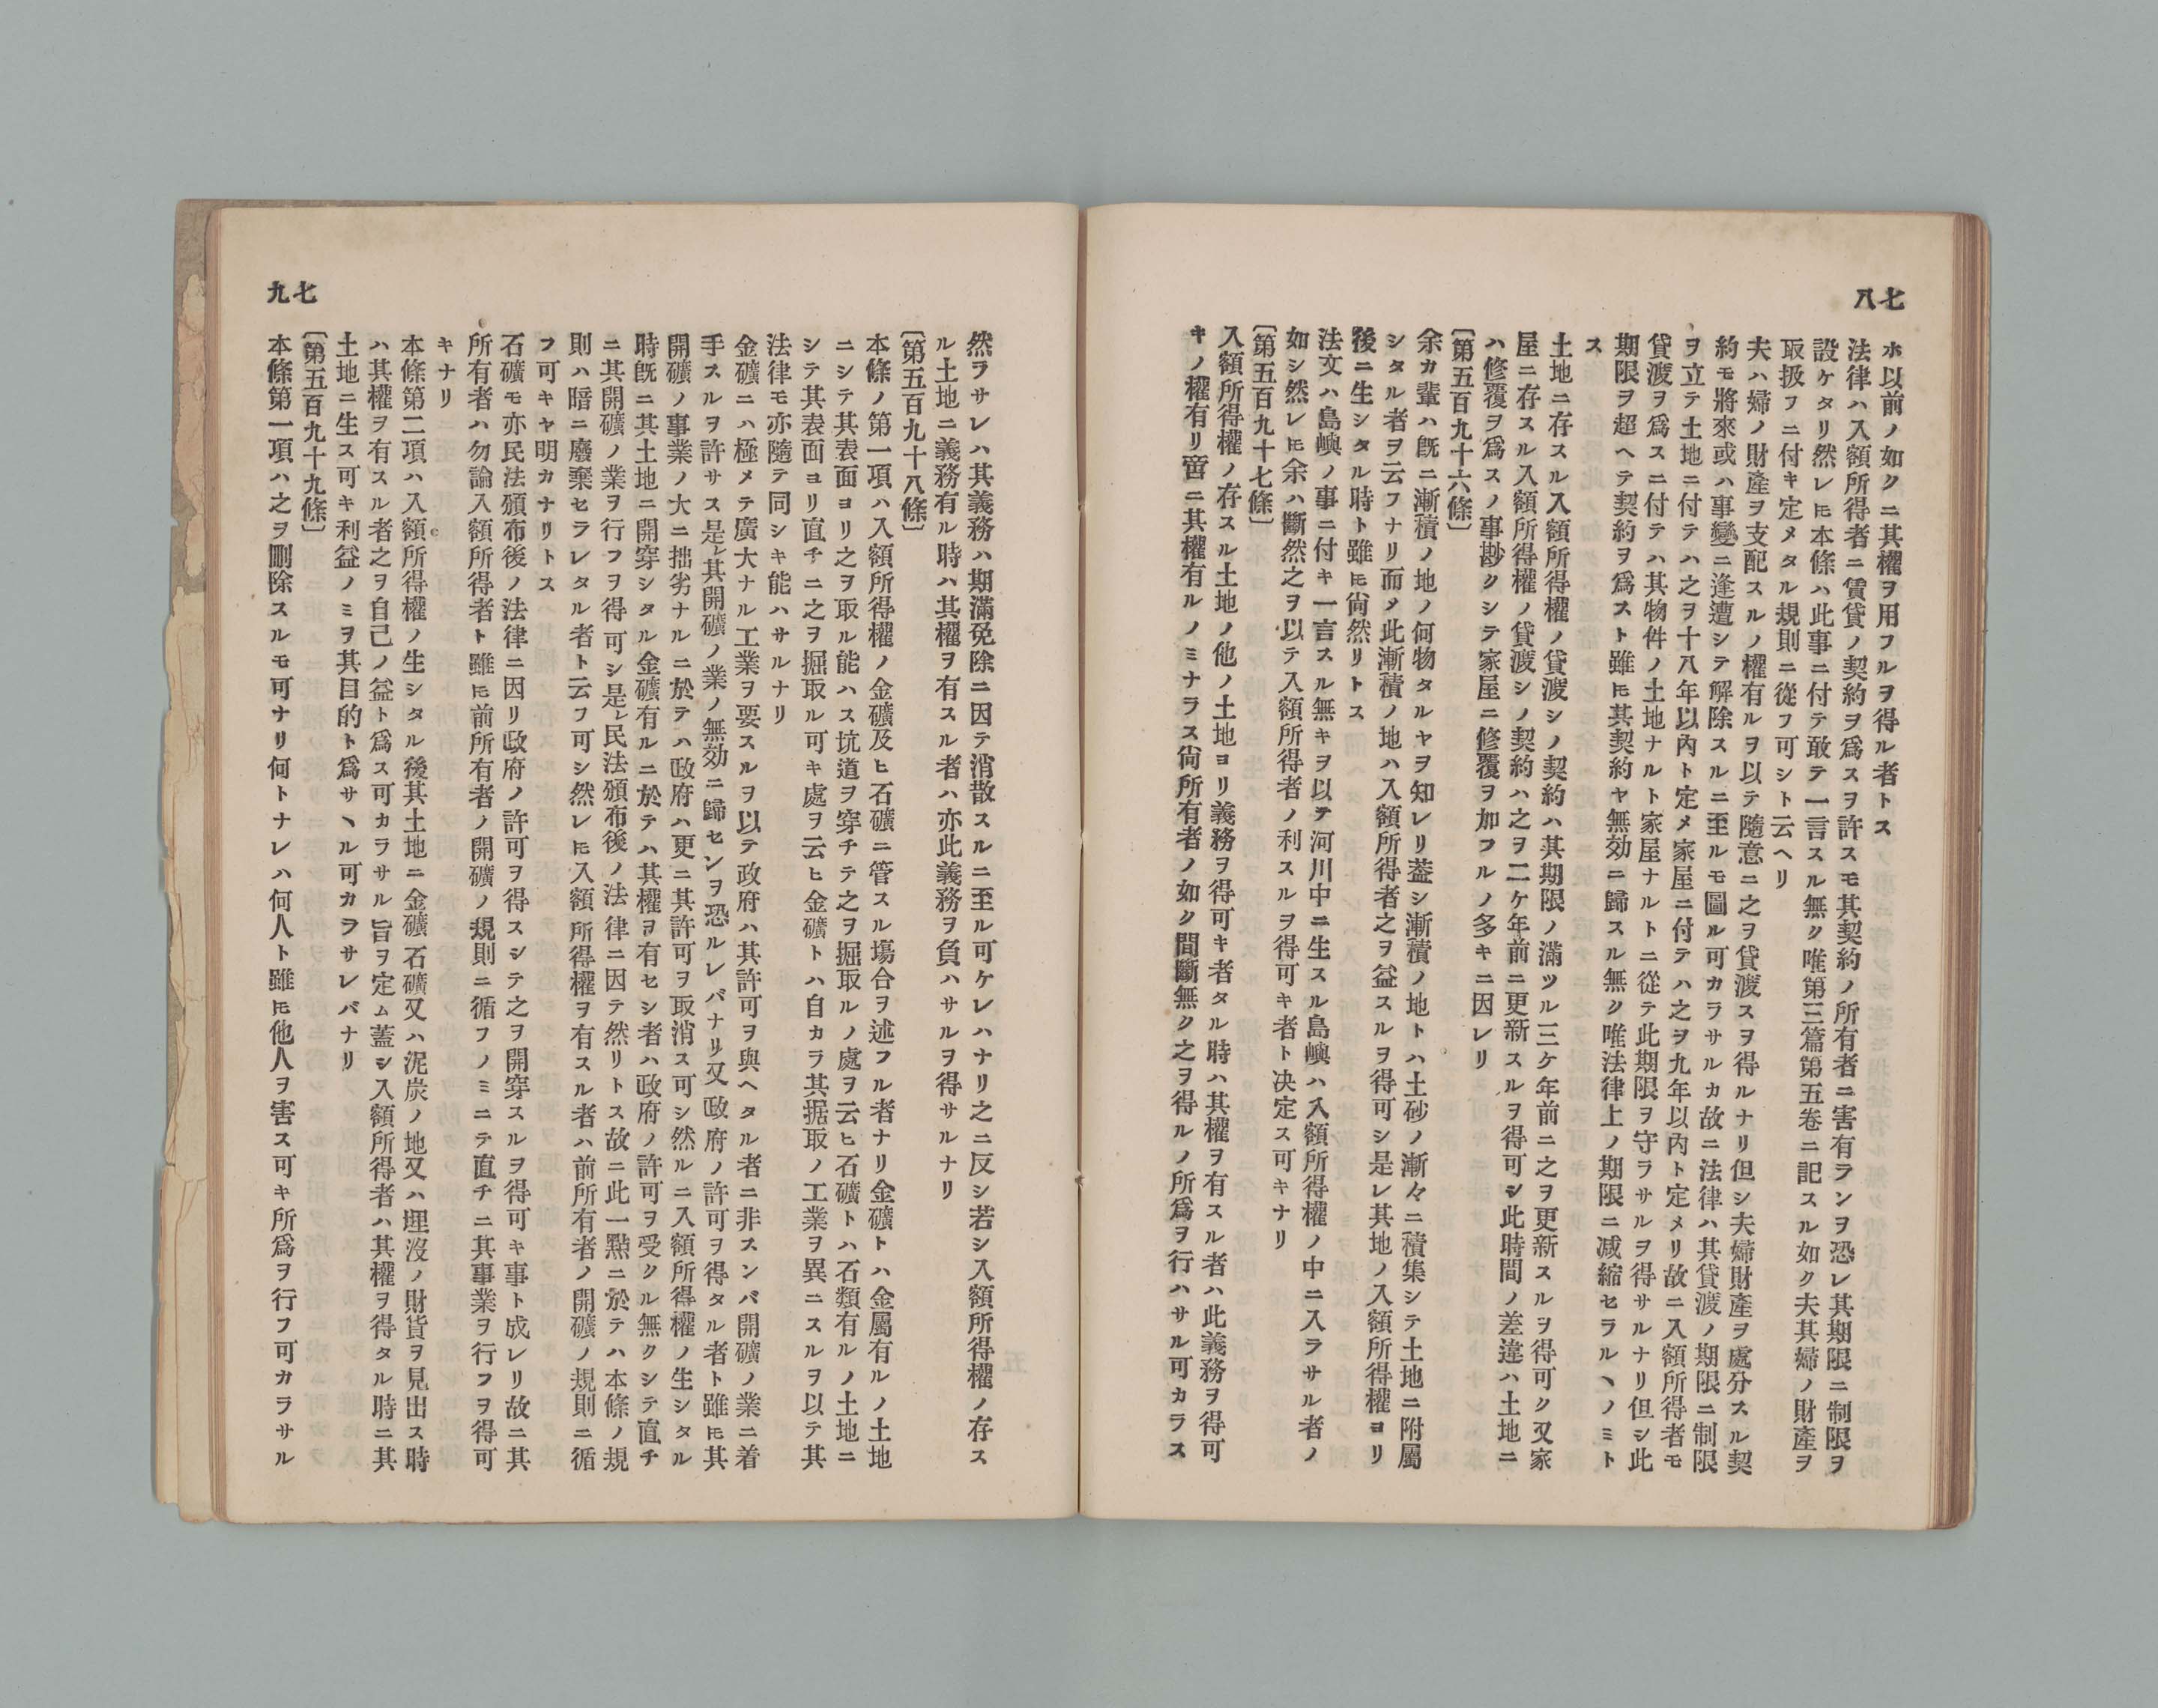 七八
ホ以前ノ如クニ其權ヲ用フルヲ得ル者トス
法律ハ入額所得者ニ賃貸ノ契約ヲ爲スヲ許スモ其契約ノ所有者ニ害有ランヲ恐レ其期限ニ制限ヲ
設ケタリ然レ𪜈本條ハ此事ニ付テ敢テ一言スル無ク唯第三篇第五卷ニ記スル如ク夫其婦ノ財產ヲ
取扱フニ付キ定メタル規則ニ從フ可シト云ヘリ
夫ハ婦ノ財產ヲ支配スルノ權有ルヲ以テ隨意ニ之ヲ貸渡スヲ得ルナリ但シ夫婦財產ヲ處分スル契
約モ將來或ハ事變ニ逢遭シテ解除スルニ至ルモ圖ル可カラサルカ故ニ法律ハ其貸渡ノ期限ニ制限
ヲ立テ土地ニ付テハ之ヲ十八年以內ト定メ家屋ニ付テハ之ヲ九年以內ト定メリ故ニ入額所得者モ
貸渡ヲ爲スニ付テハ其物件ノ土地ナルト家屋ナルトニ從テ此期限ヲ守ラサルヲ得サルナリ但シ此
期限ヲ超ヘテ契約ヲ爲スト雖𪜈其契約ヤ無効ニ歸スル無ク唯法律上ノ期限ニ减縮セラルヽノミト
ス
土地ニ存スル入額所得權ノ貸渡シノ契約ハ其期限ノ滿ツル三ケ年前ニ之ヲ更新スルヲ得可ク又家
屋ニ存スル入額所得權ノ貸渡シノ契約ハ之ヲ二ケ年前ニ更新スルヲ得可シ此時間ノ差違ハ土地ニ
ハ修覆ヲ爲スノ事尠クシテ家屋ニ修覆ヲ加フルノ多キニ因レリ
〔第五百九十六條〕
余カ輩ハ旣ニ漸積ノ地ノ何物タルヤヲ知レリ蓋シ漸積ノ地トハ土砂ノ漸々ニ積集シテ土地ニ附屬
シタル者ヲ云フナリ而〆此漸積ノ地ハ入額所得者之ヲ益スルヲ得可シ是レ其地ノ入額所得權ヨリ
後ニ生シタル時ト雖𪜈尙然リトス
法文ハ島嶼ノ事ニ付キ一言スル無キヲ以テ河川中ニ生スル島嶼ハ入額所得權ノ中ニ入ラサル者ノ
如シ然レ𪜈余ハ斷然之ヲ以テ入額所得者ノ利スルヲ得可キ者ト决定ス可キナリ
〔第五百九十七條〕
入額所得權ノ存スル土地ノ他ノ土地ヨリ義務ヲ得可キ者タル時ハ其權ヲ有スル者ハ此義務ヲ得可
キノ權有リ啻ニ其權有ルノミナラス尙所有者ノ如ク間斷無ク之ヲ得ルノ所爲ヲ行ハサル可カラス
七九
然ラサレハ其義務ハ期滿免除ニ因テ消散スルニ至ル可ケレハナリ之ニ反シ若シ入額所得權ノ存ス
ル土地ニ義務有ル時ハ其權ヲ有スル者ハ亦此義務ヲ負ハサルヲ得サルナリ
〔第五百九十八條〕
本條ノ第一項ハ入額所得權ノ金礦及ヒ石礦ニ管スル塲合ヲ述フル者ナリ金礦トハ金屬有ルノ土地
ニシテ其表面ヨリ之ヲ取ル能ハス坑道ヲ穿チテ之ヲ掘取ルノ處ヲ云ヒ石礦トハ石類有ルノ土地ニ
シテ其表面ヨリ直チニ之ヲ掘取ル可キ處ヲ云ヒ金礦トハ自カラ其掘取ノ工業ヲ異ニスルヲ以テ其
法律モ亦隨テ同シキ能ハサルナリ
金礦ニハ極メテ廣大ナル工業ヲ要スルヲ以テ政府ハ其許可ヲ與ヘタル者ニ非スンバ開礦ノ業ニ着
手スルヲ許サス是レ其開礦ノ業ノ無効ニ歸センヲ恐ルレバナリ又政府ノ許可ヲ得タル者ト雖𪜈其
開礦ノ事業ノ大ニ拙劣ナルニ於テハ政府ハ更ニ其許可ヲ取消ス可シ然ルニ入額所得權ノ生シタル
時旣ニ其土地ニ開穿シタル金礦有ルニ於テハ其權ヲ有セシ者ハ政府ノ許可ヲ受クル無クシテ直チ
ニ其開礦ノ業ヲ行フヲ得可シ是レ民法頒布後ノ法律ニ因テ然リトス故ニ此一點ニ於テハ本條ノ規
則ハ暗ニ廢棄セラレタル者ト云フ可シ然レ𪜈入額所得權ヲ有スル者ハ前所有者ノ開礦ノ規則ニ循
フ可キヤ明カナリトス
石礦モ亦民法頒布後ノ法律ニ因リ政府ノ許可ヲ得スシテ之ヲ開穿スルヲ得可キ事ト成レリ故ニ其
所有者ハ勿論入額所得者ト雖𪜈前所有者ノ開礦ノ規則ニ循フノミニテ直チニ其事業ヲ行フヲ得可
キナリ
本條第二項ハ入額所得權ノ生シタル後其土地ニ金礦石礦又ハ泥炭ノ地又ハ埋沒ノ財貨ヲ見出ス時
ハ其權ヲ有スル者之ヲ自己ノ益ト爲ス可カラサル旨ヲ定ム蓋シ入額所得者ハ其權ヲ得タル時ニ其
土地ニ生ス可キ利益ノミヲ其目的ト爲サヽル可カラサレバナリ
〔第五百九十九條〕
本條第一項ハ之ヲ刪除スルモ可ナリ何トナレハ何人ト雖𪜈他人ヲ害ス可キ所爲ヲ行フ可カラサル